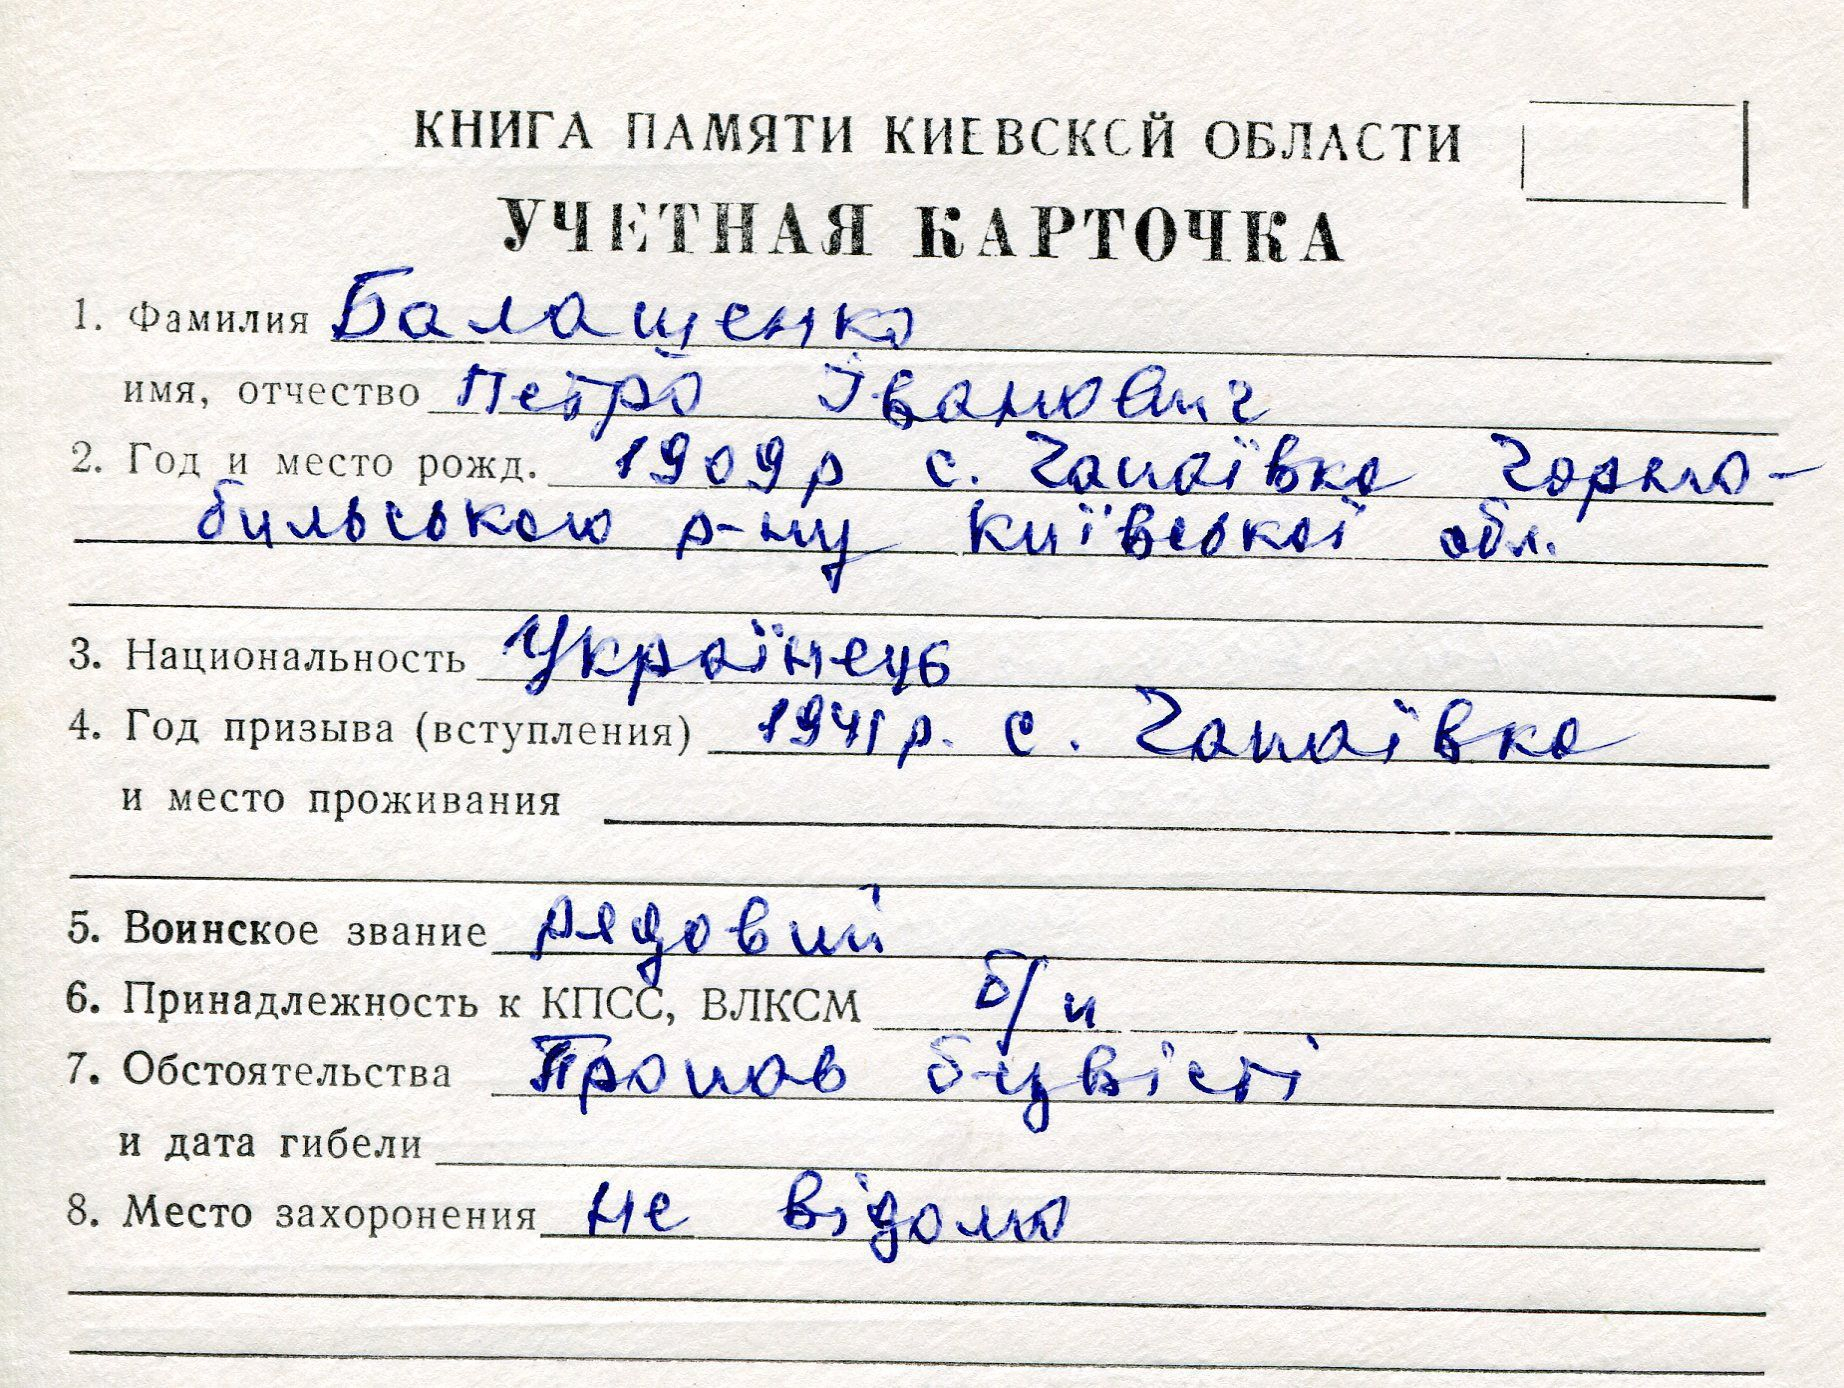 КНИГА ПАМЯТИ КИЕВСКОЙ ОБЛАСТИ
УЧЕТНАЯ КАРТОЧКА
1. Фамилия Балащенко
имя, отчество Петро Іванович
2. Год и место рожд. 1909р с. Чапаївка Чорно-
бильського р-ну Київської обл.
3. Национальность Українець
4. Год призыва (вступления) 1941р. с. Чапаївка
и место проживания
5. Воинское звание рядовий
6. Принадлежность к КПСС, ВЛКСМ б/п
7. Обстоятельства Пропав безвісті
и дата гибели
8. Место захоронения не відомо